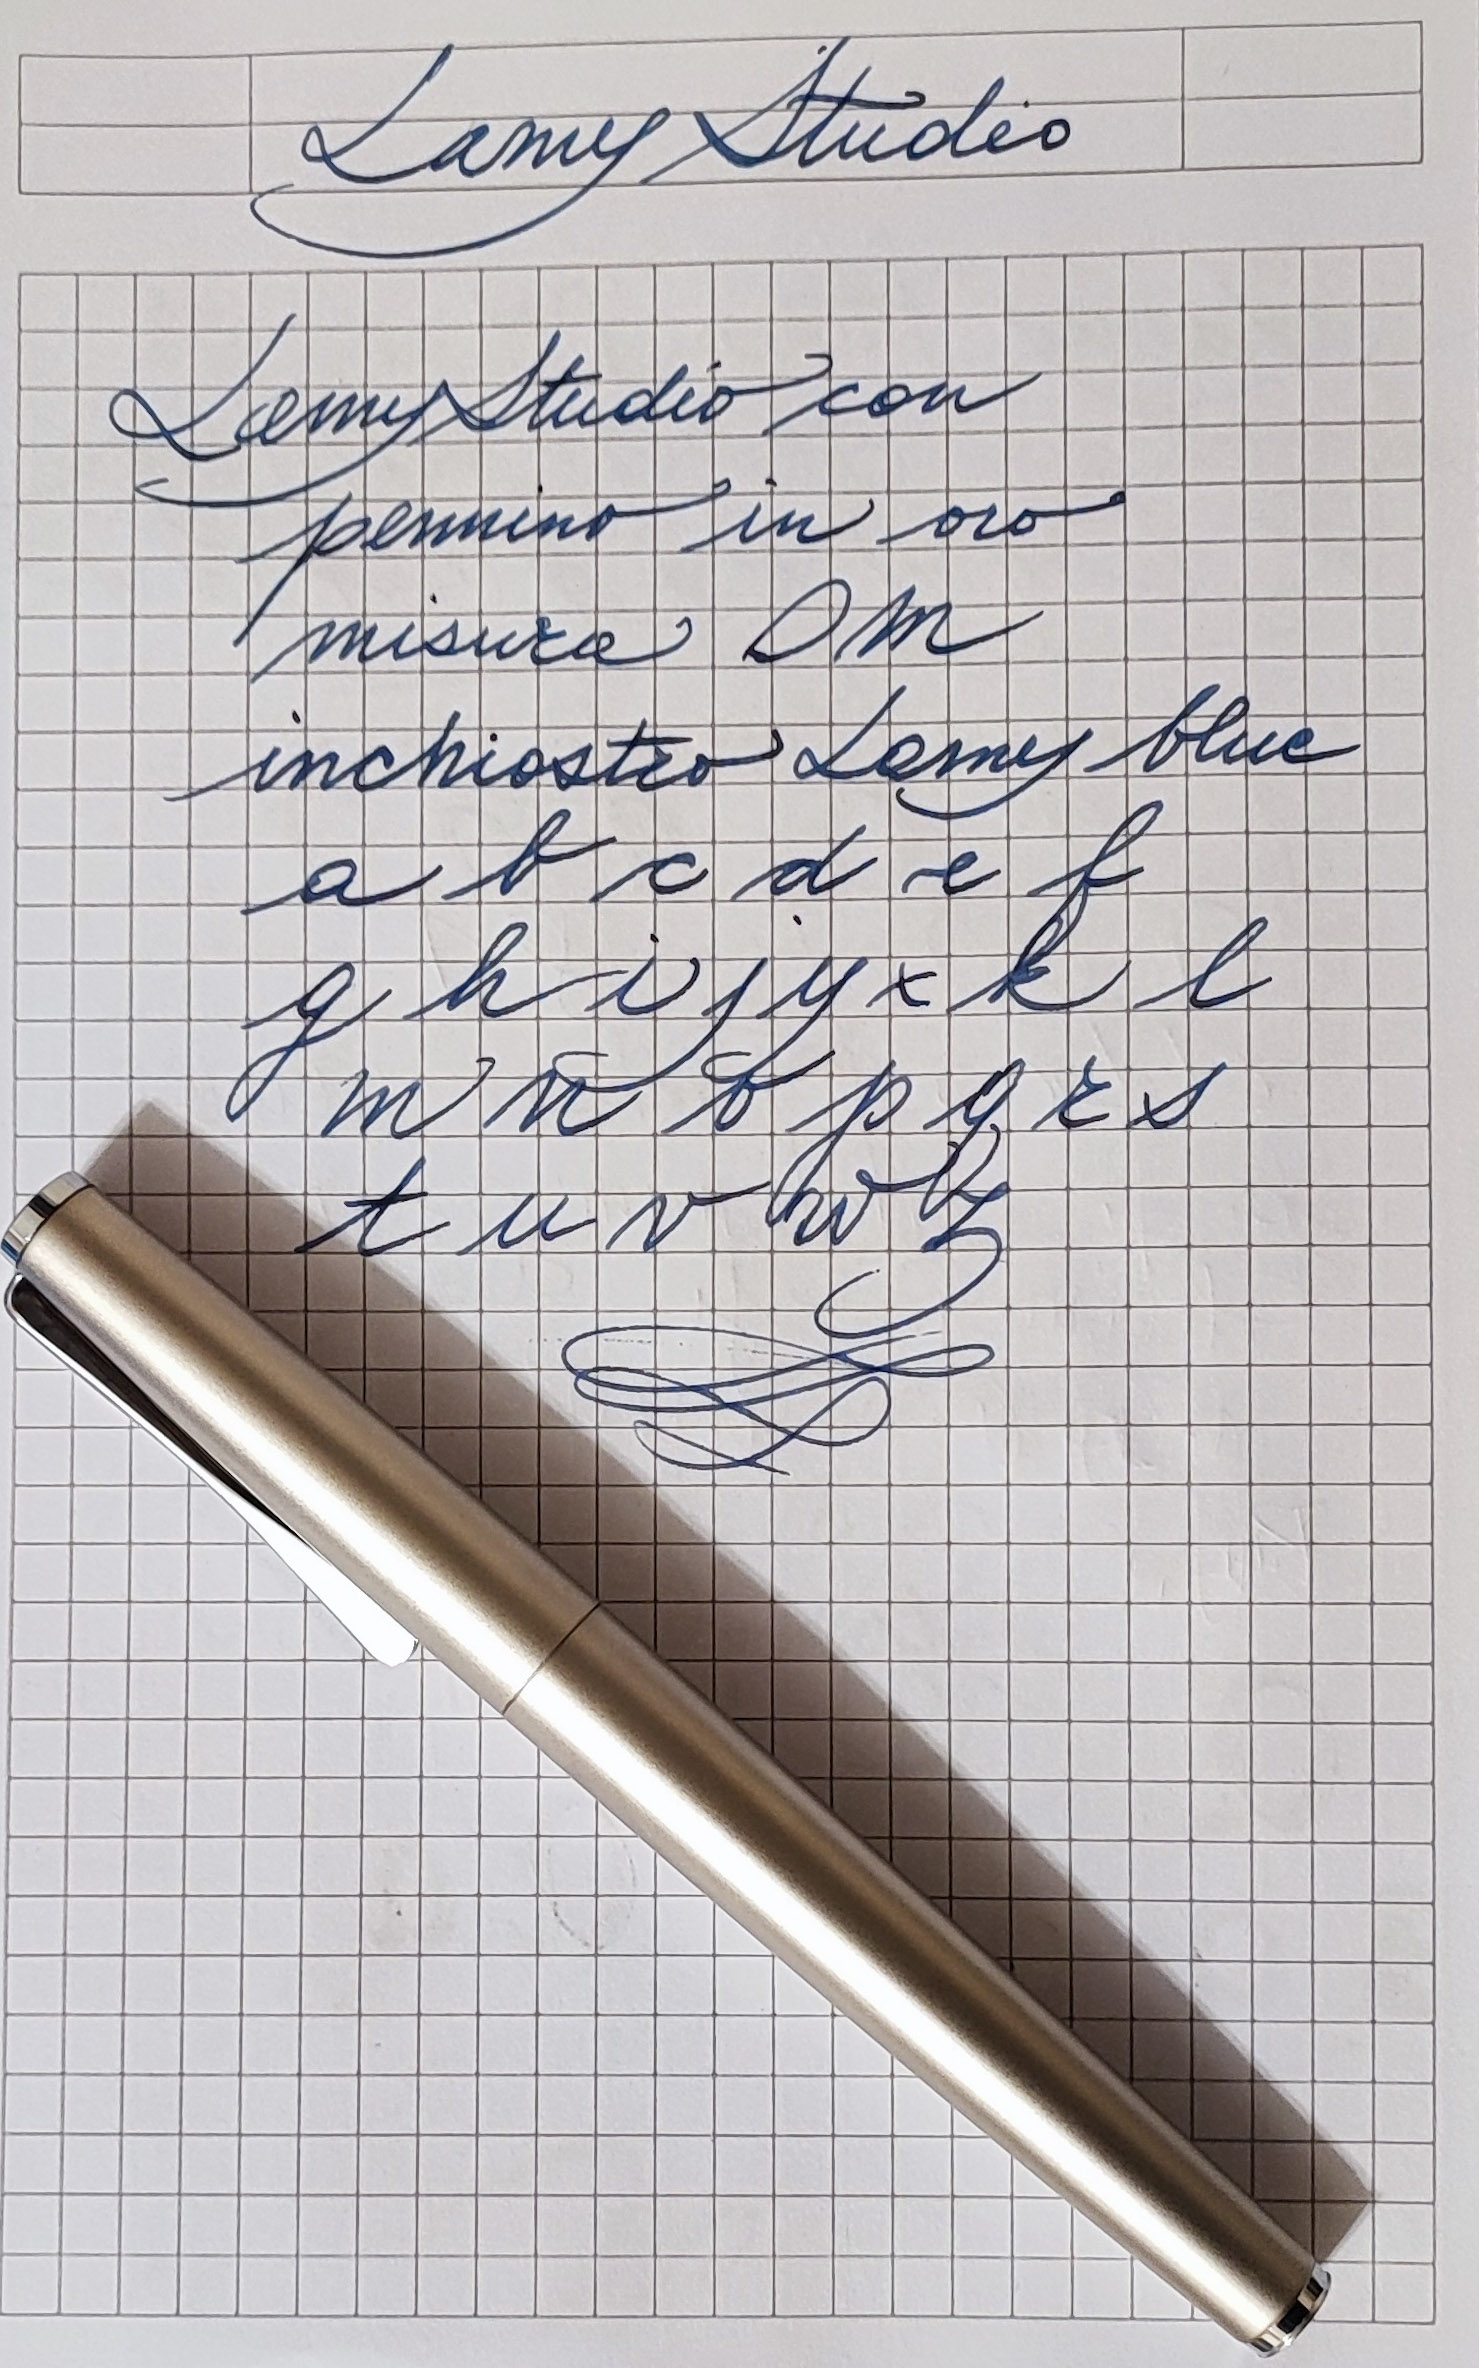 Lamy Studio
Lamy Studio con
pennino in oro
misura OM
inchiostro Lamy blue
a b c d e f
g h i j y x k l
m n o p q r s
t u v w z